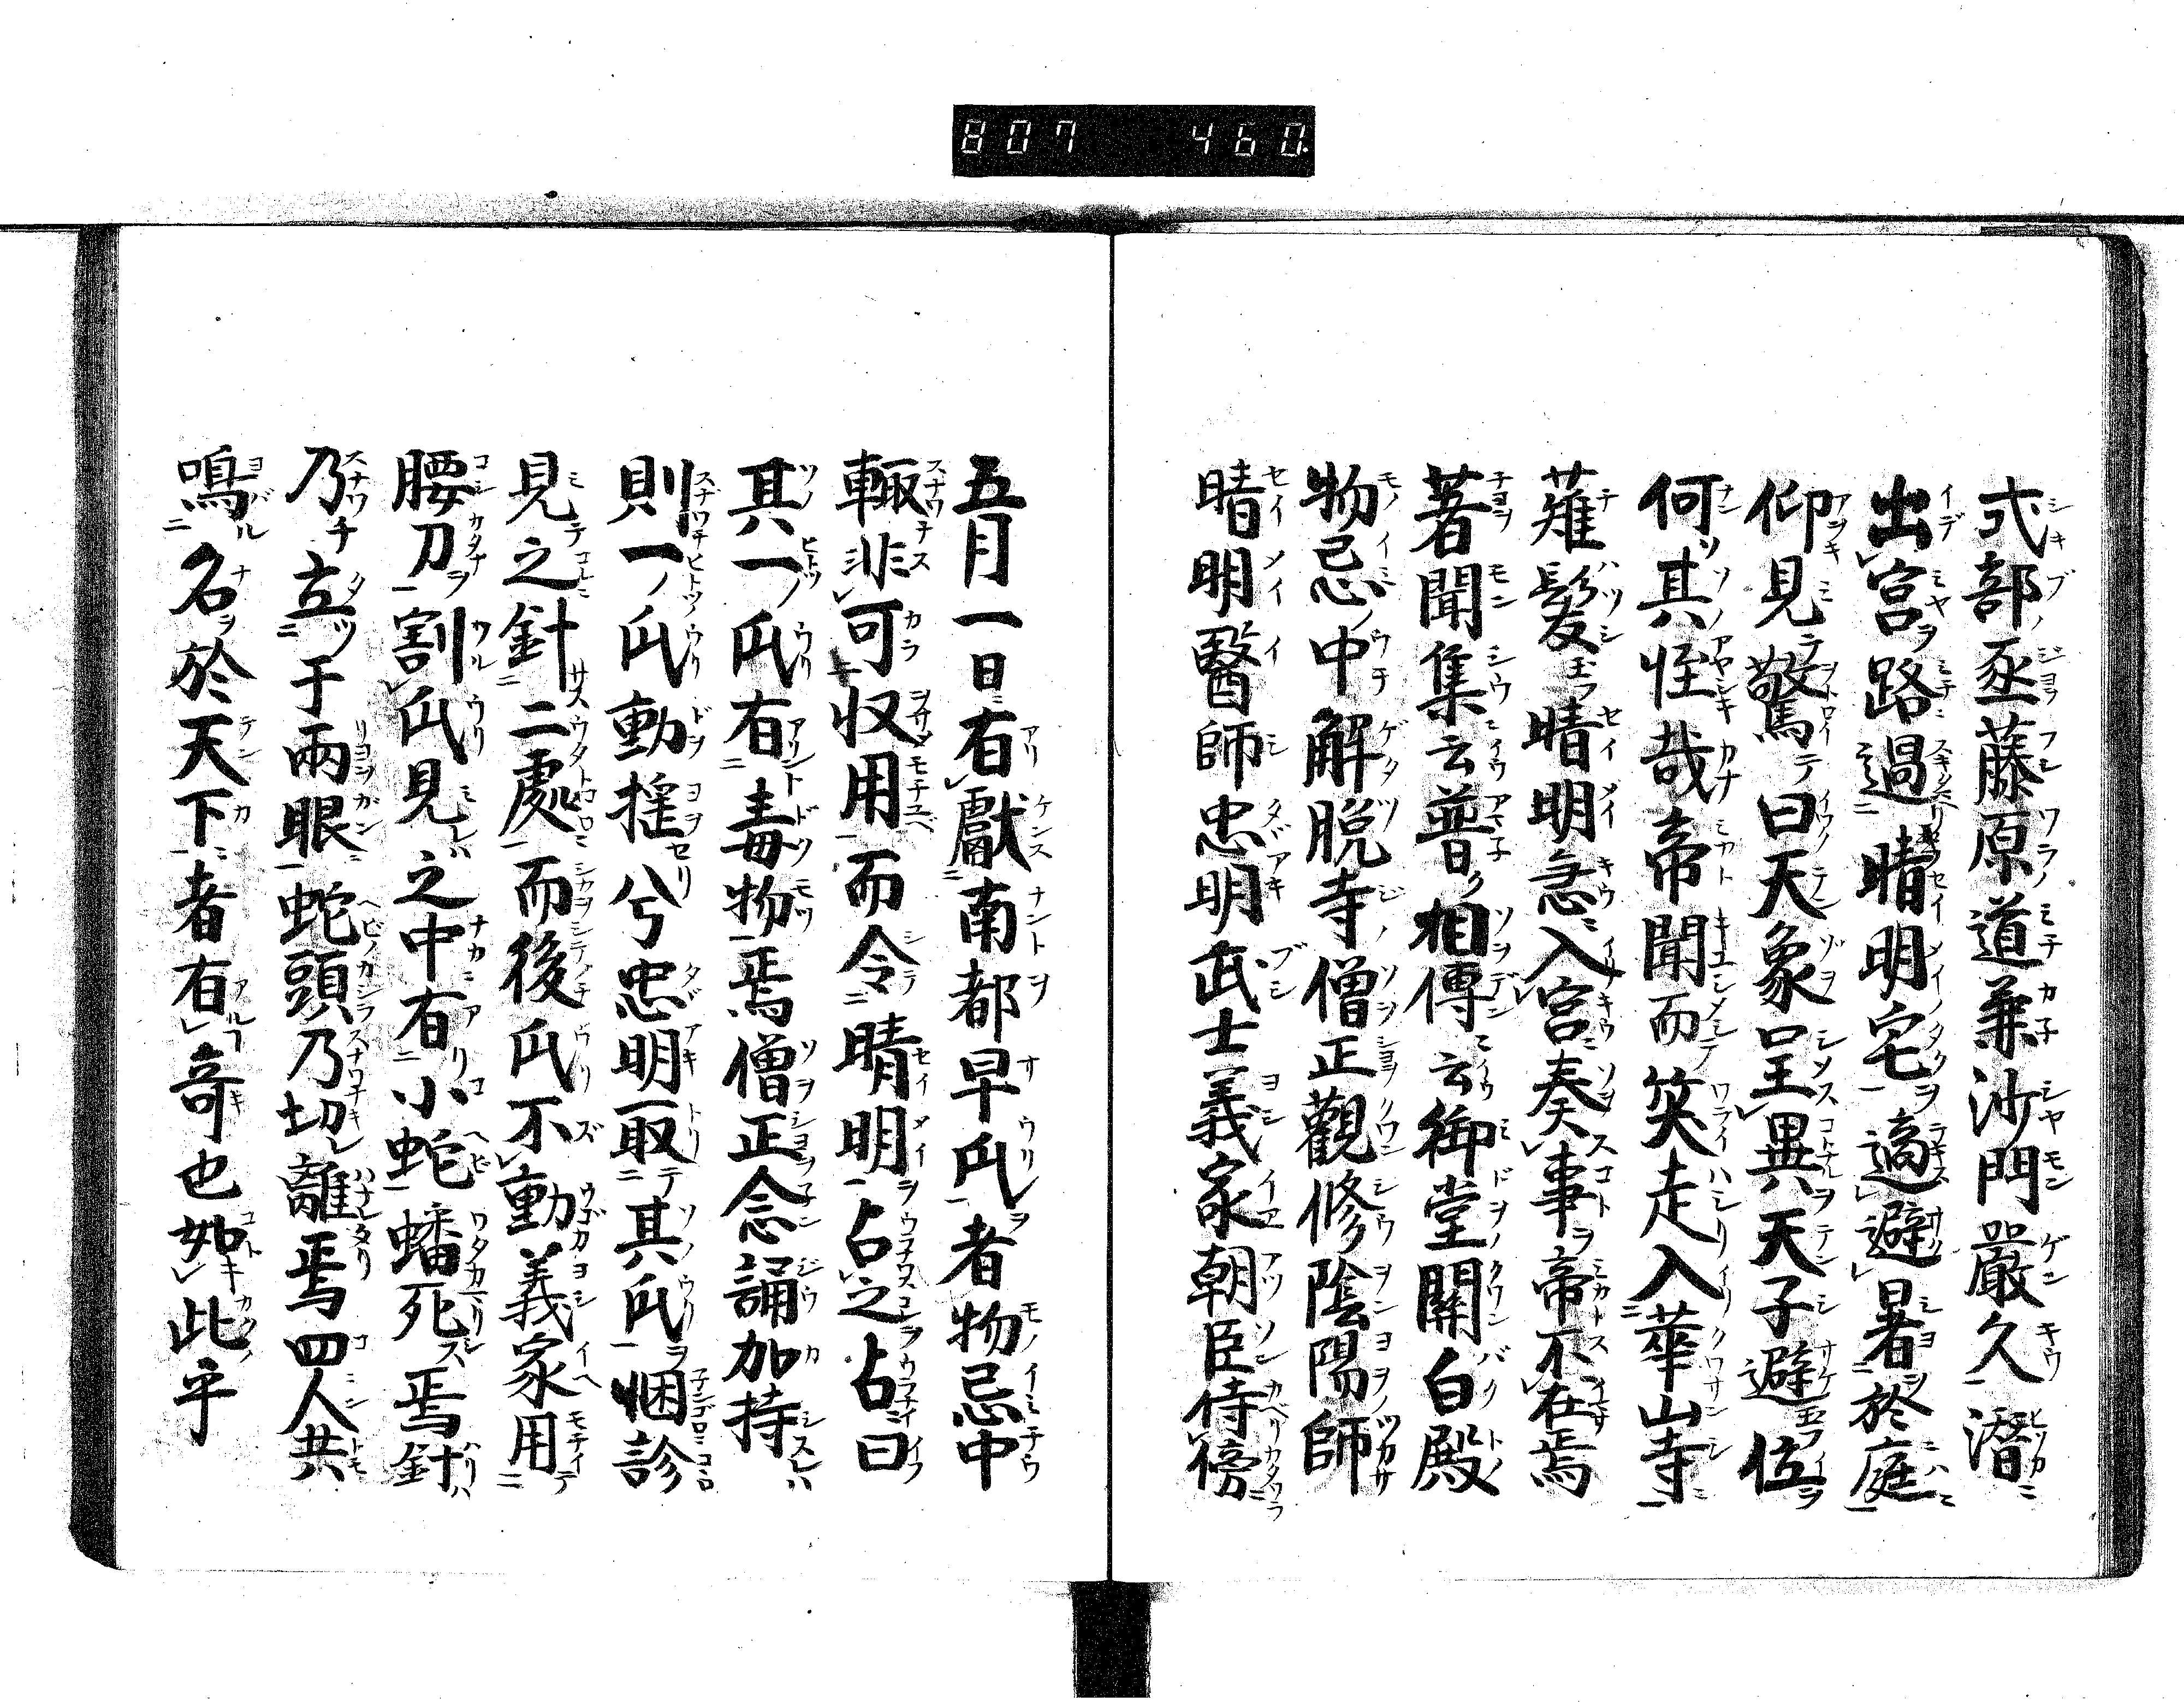 807 460
式部丞藤原道兼沙門嚴久潛
出宮路過晴明宅適避暑於庭
仰見驚曰天象呈異天子避位
何其怪哉帝聞而笑走入華山寺
薙髮玉フ晴明急入宮奏事帝不在焉
著聞集云普相傳云御堂關白殿
物忌中解脫寺僧正觀修陰陽師
晴明醫師忠明武士義家朝臣侍傍
五月一日有獻南都早瓜者物忌中
輙非可収用而令晴明占之占曰
其一瓜有毒物焉僧正念誦加持
則一瓜動揺兮忠明取其瓜悃診
見之針二處而後瓜不動義家用
腰刀割瓜見之中有小蛇蟠死焉針
乃立于兩眼蛇頭乃切離焉四人共
鳴名於天下者有竒也如此乎